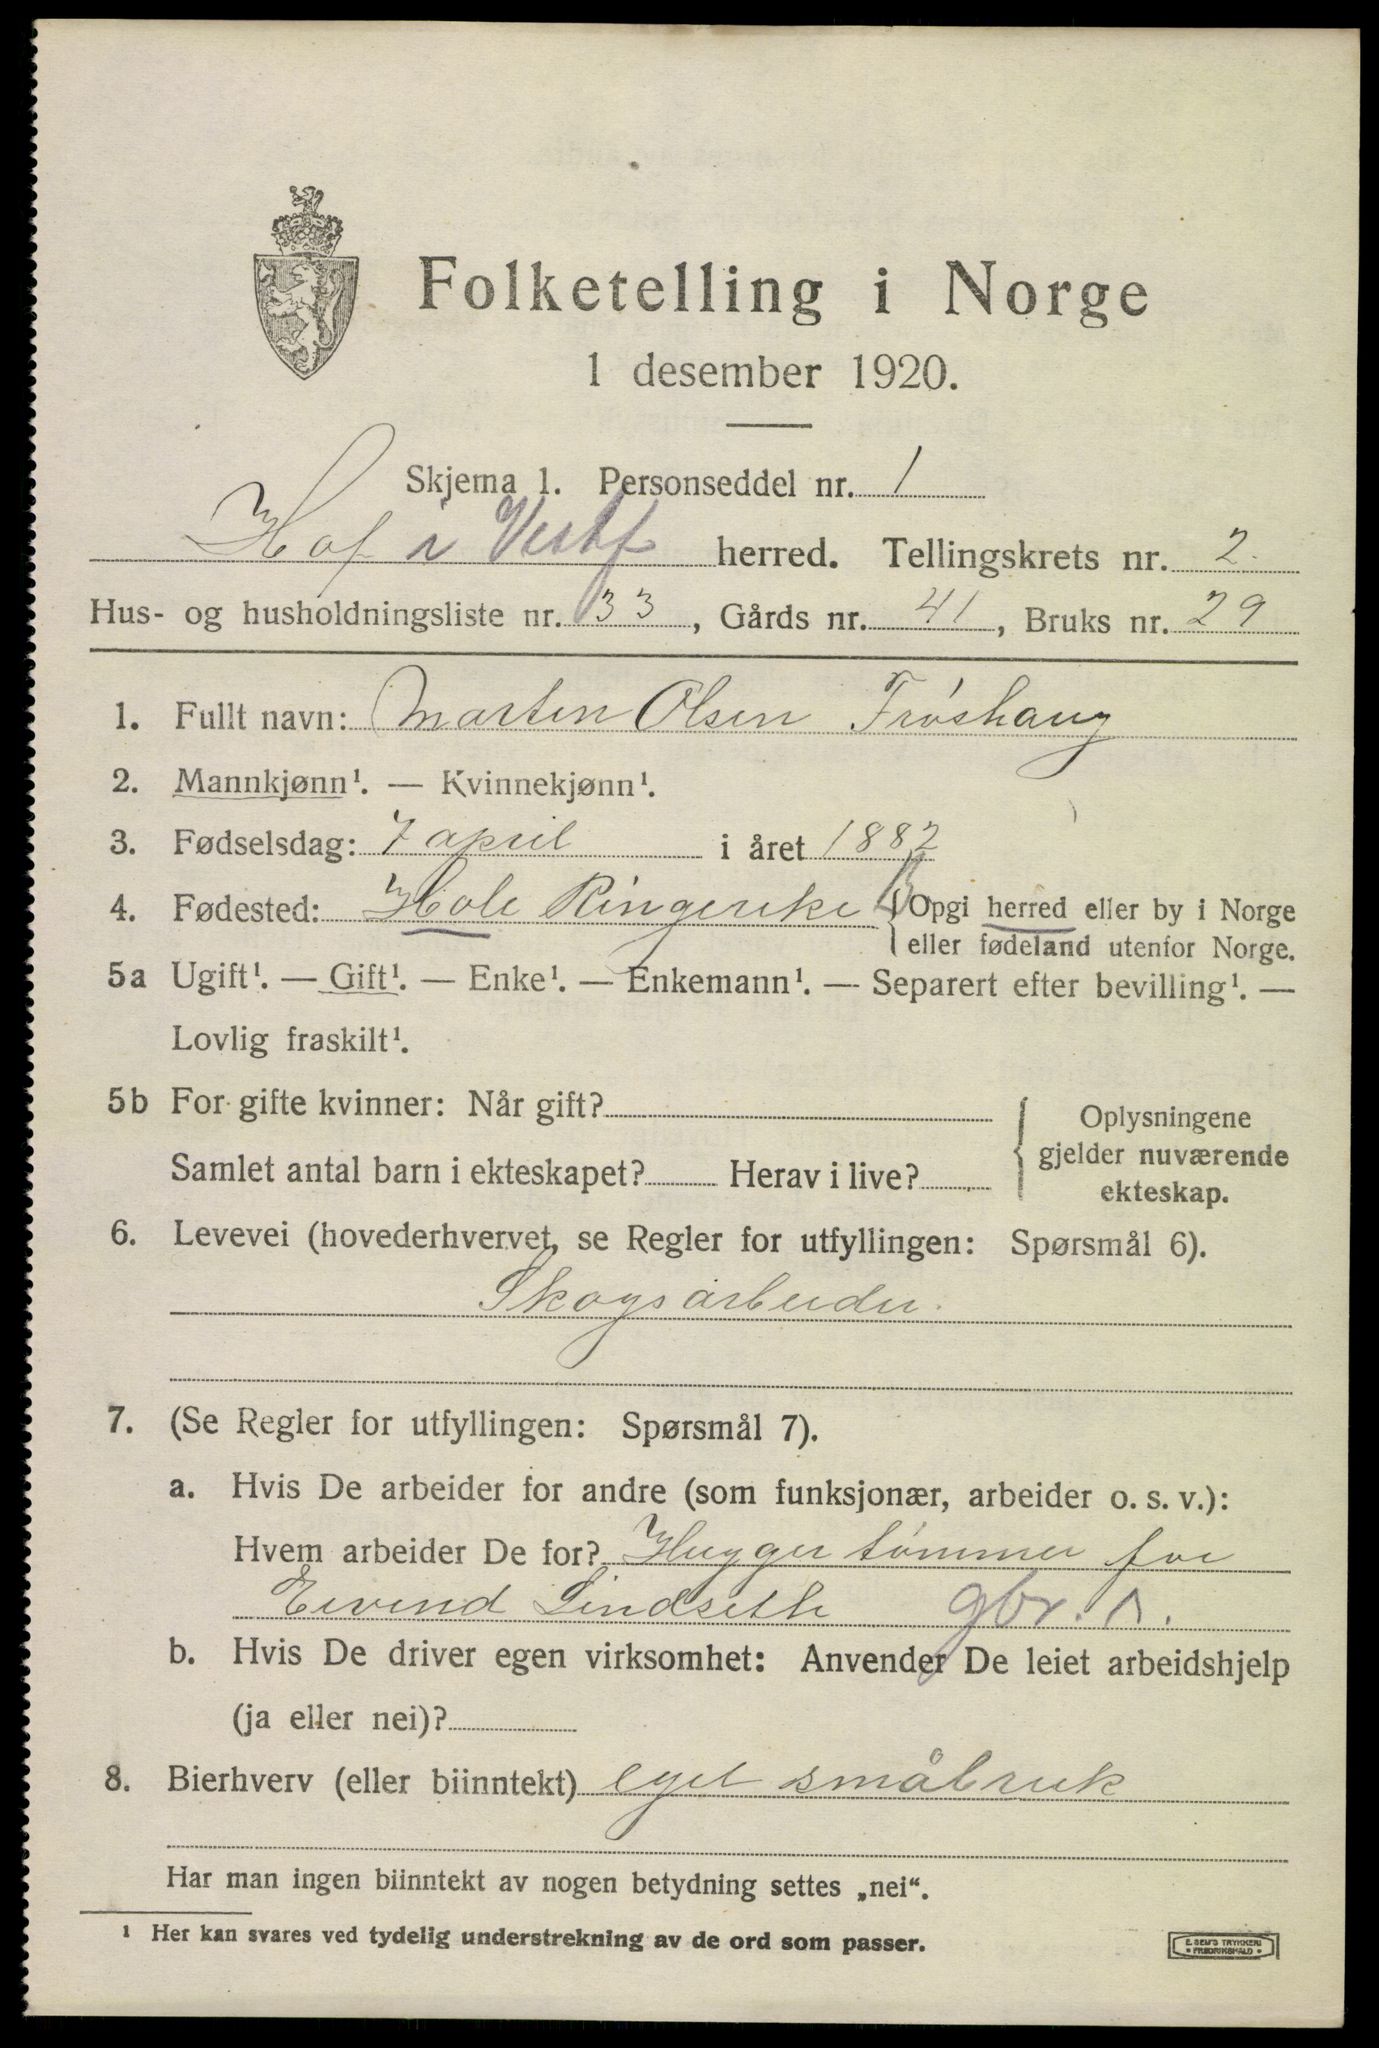 Folketelling i Norge
1 desember 1920.
Skjema 1. Personseddel nr. 1
Hof i Vestf herred. Tellingskrets nr. 2.
Hus- og husholdningsliste nr. 33, Gårds nr. 41, Bruks nr. 29
1. Fullt navn: Marten Olsen Frøshaug
2. Mannkjønn¹. — Kvinnekjønn¹.
3. Fødselsdag: 7 april i året 1882
4. Fødested: Hole Ringerike B { Opgi herred eller by i Norge
eller fødeland utenfor Norge.
5a Ugift¹. — Gift¹. — Enke¹. — Enkemann¹. — Separert efter bevilling¹. —
Lovlig fraskilt¹.
5b For gifte kvinner: Når gift?
Samlet antal barn i ekteskapet? Herav i live?
Oplysningene
gjelder nuværende
ekteskap.
6. Levevei (hovederhvervet, se Regler for utfyllingen: Spørsmål 6).
Skogsarbeider.
7. (Se Regler for utfyllingen: Spørsmål 7).
a. Hvis De arbeider for andre (som funksjonær, arbeider o. s. v.):
Hvem arbeider De for? Hugger tømmer for
Eivind Lindseth gbr.
b. Hvis De driver egen virksomhet: Anvender De leiet arbeidshjelp
(ja eller nei)?
8. Bierhverv (eller biinntekt) eget småbruk
Har man ingen biinntekt av nogen betydning settes „nei“.
¹ Her kan svares ved tydelig understrekning av de ord som passer.
E. SEM'S TRYKKERI
• FREDRIKSHALD •